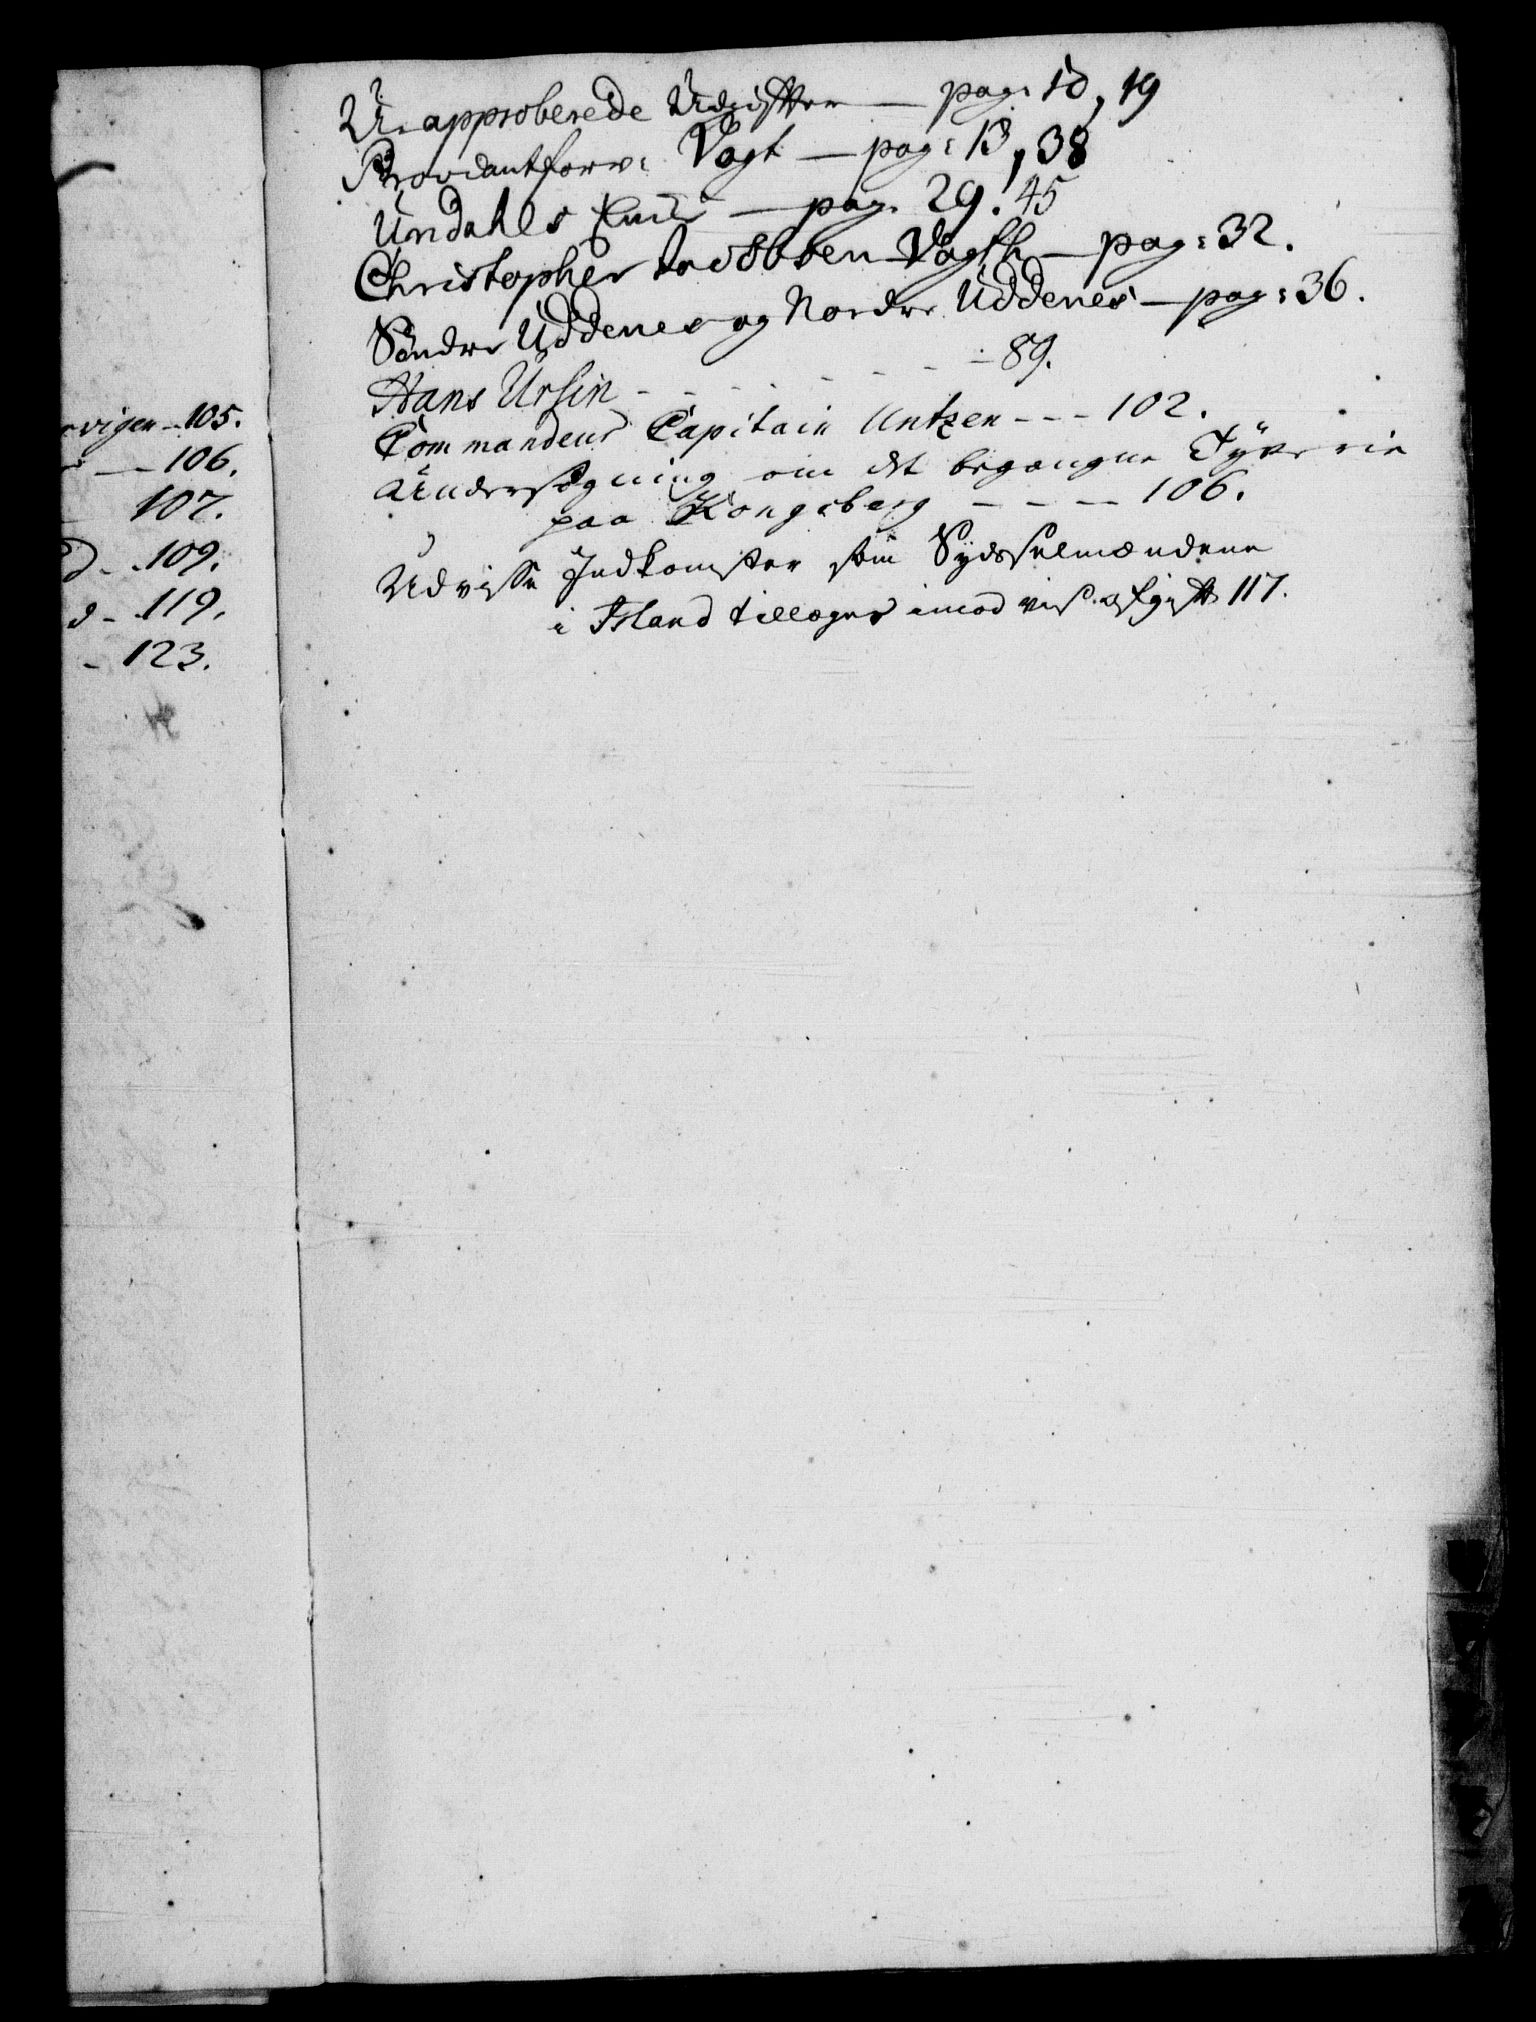 rvigen - 105.
- 106.
107.
d - 109.
d - 119.
- 123.
Unapproberede Udgifter — pag: 10, 19
Proviantforv: Vogt — pag: 13, 38
Undahls — pag. 29. 45
Christopher Vogth — pag: 32.
Søndre Uddenes og Nordre Uddenes — pag: 36.
Hans Ursin - - - - - - - 89.
Commandeur Capitain Untzen - - - 102.
Undersøgning om det begangne Tyverie
paa Kongsberg - - - - 106.
Udvisse Indkomster som Sydsselmændene
i Island tillægnes imod vis afgift 117.